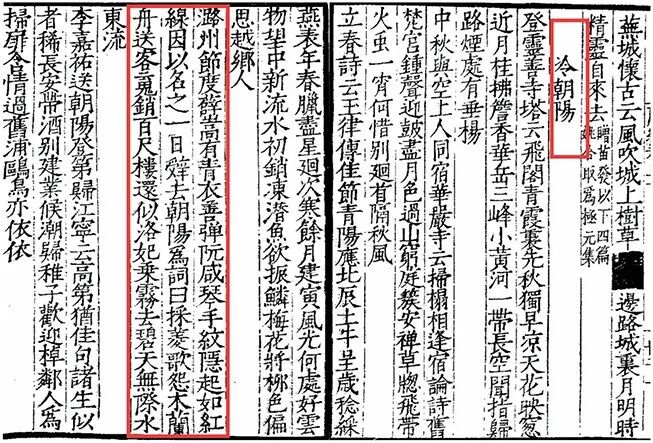 蕪城懷古云風吹城上樹草 邊路城裏月明時
精靈自來去
贈苗發以下四篇
姚合取爲極元集
冷朝陽
登靈善寺塔云飛閣青霞裏先秋獨早涼天花映窻
近月桂拂簷香華岳三峰小黃河一帶長空聞指歸
路煙處有垂楊
中秋與空上人同宿華嚴寺云掃榻相逢宿論詩舊
梵宮鍾聲迎鼓盡月色過山窮庭簇安禪草牕飛帶
火虫一宵何惜別廻首隔秋風
立春詩云玉律傳佳節青陽應北辰土牛呈歳稔綵
燕表年春臘盡星廻次寒餘月建寅風光何處好雲
物望中新流水初銷凍潛魚欲振鱗梅花將柳色偏
思越鄉人
潞州節度薛嵩有青衣善彈阮咸琴手紋隱起如紅
線因以名之一日辭去朝陽爲詞曰採菱歌怨木蘭
舟送客䰟銷百尺樓還似洛妃乗霧去碧天無際水
東流
李嘉祐送朝陽登第歸江寧云高第猶佳句諸生似
者稀長安帶酒别建業候潮歸稚子歡迎棹鄰人爲
掃扉含情過舊浦鷗鳥亦依依